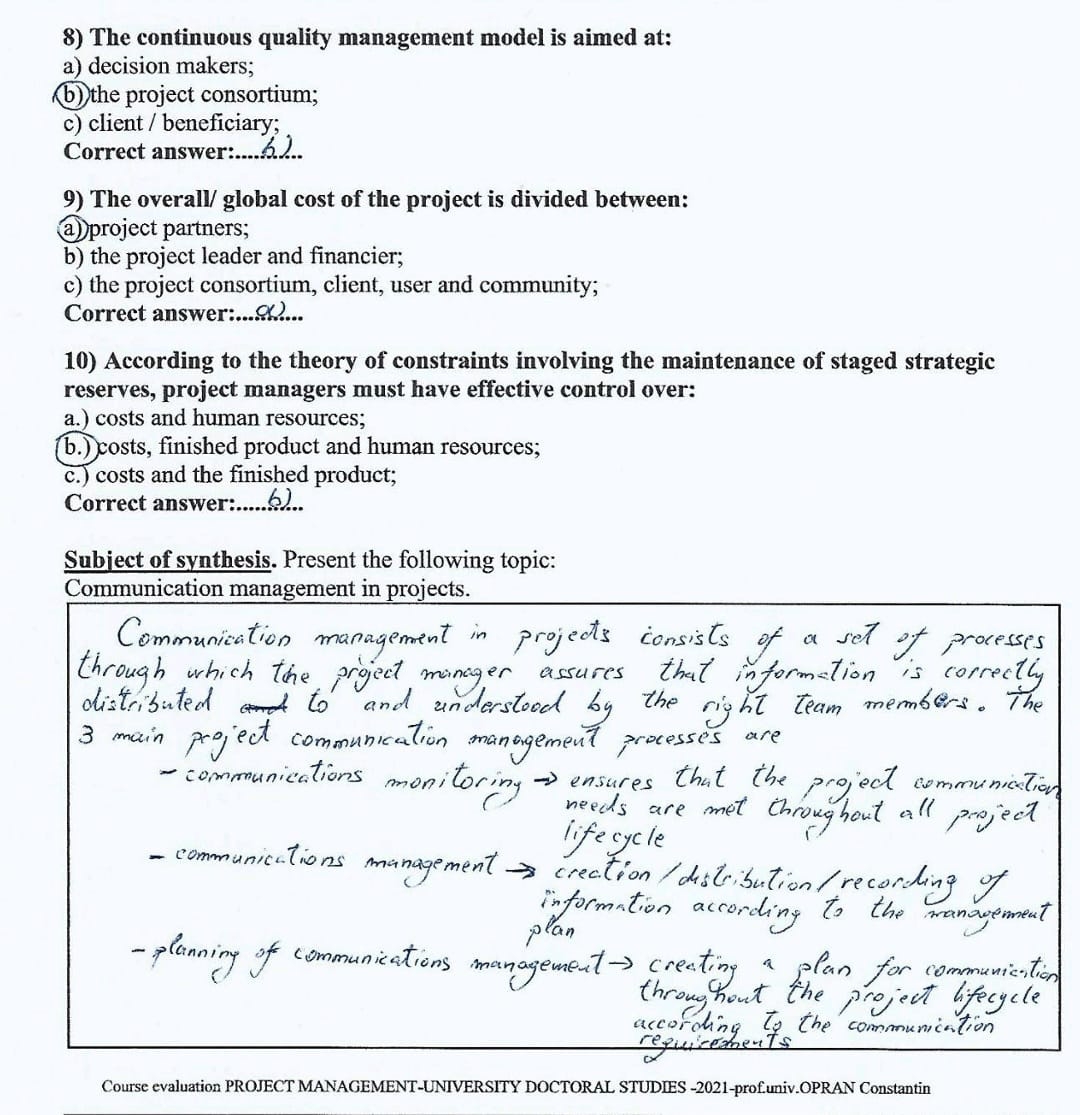 8) The continuous quality management model is aimed at:
a) decision makers;
b) the project consortium;
c) client / beneficiary;
Correct answer:....b)..
9) The overall/ global cost of the project is divided between:
a) project partners;
b) the project leader and financier;
c) the project consortium, client, user and community;
Correct answer:...a)...
10) According to the theory of constraints involving the maintenance of staged strategic
reserves, project managers must have effective control over:
a.) costs and human resources;
b.) costs, finished product and human resources;
c.) costs and the finished product;
Correct answer:.....b)..
Subject of synthesis. Present the following topic:
Communication management in projects.
Communication management in projects consists of a set of processes
through which the project manager assures that information is correctly
distributed and to and understood by the right team members. The
3 main project communication management processes are
- communications monitoring → ensures that the project communication
needs are met throughout all project
lifecycle
- communications management → creation / distribution / recording of
information according to the management
plan
- planning of communications management → creating a plan for communication
throughout the project lifecycle
according to the communication
requirements
Course evaluation PROJECT MANAGEMENT-UNIVERSITY DOCTORAL STUDIES -2021-prof.univ.OPRAN Constantin